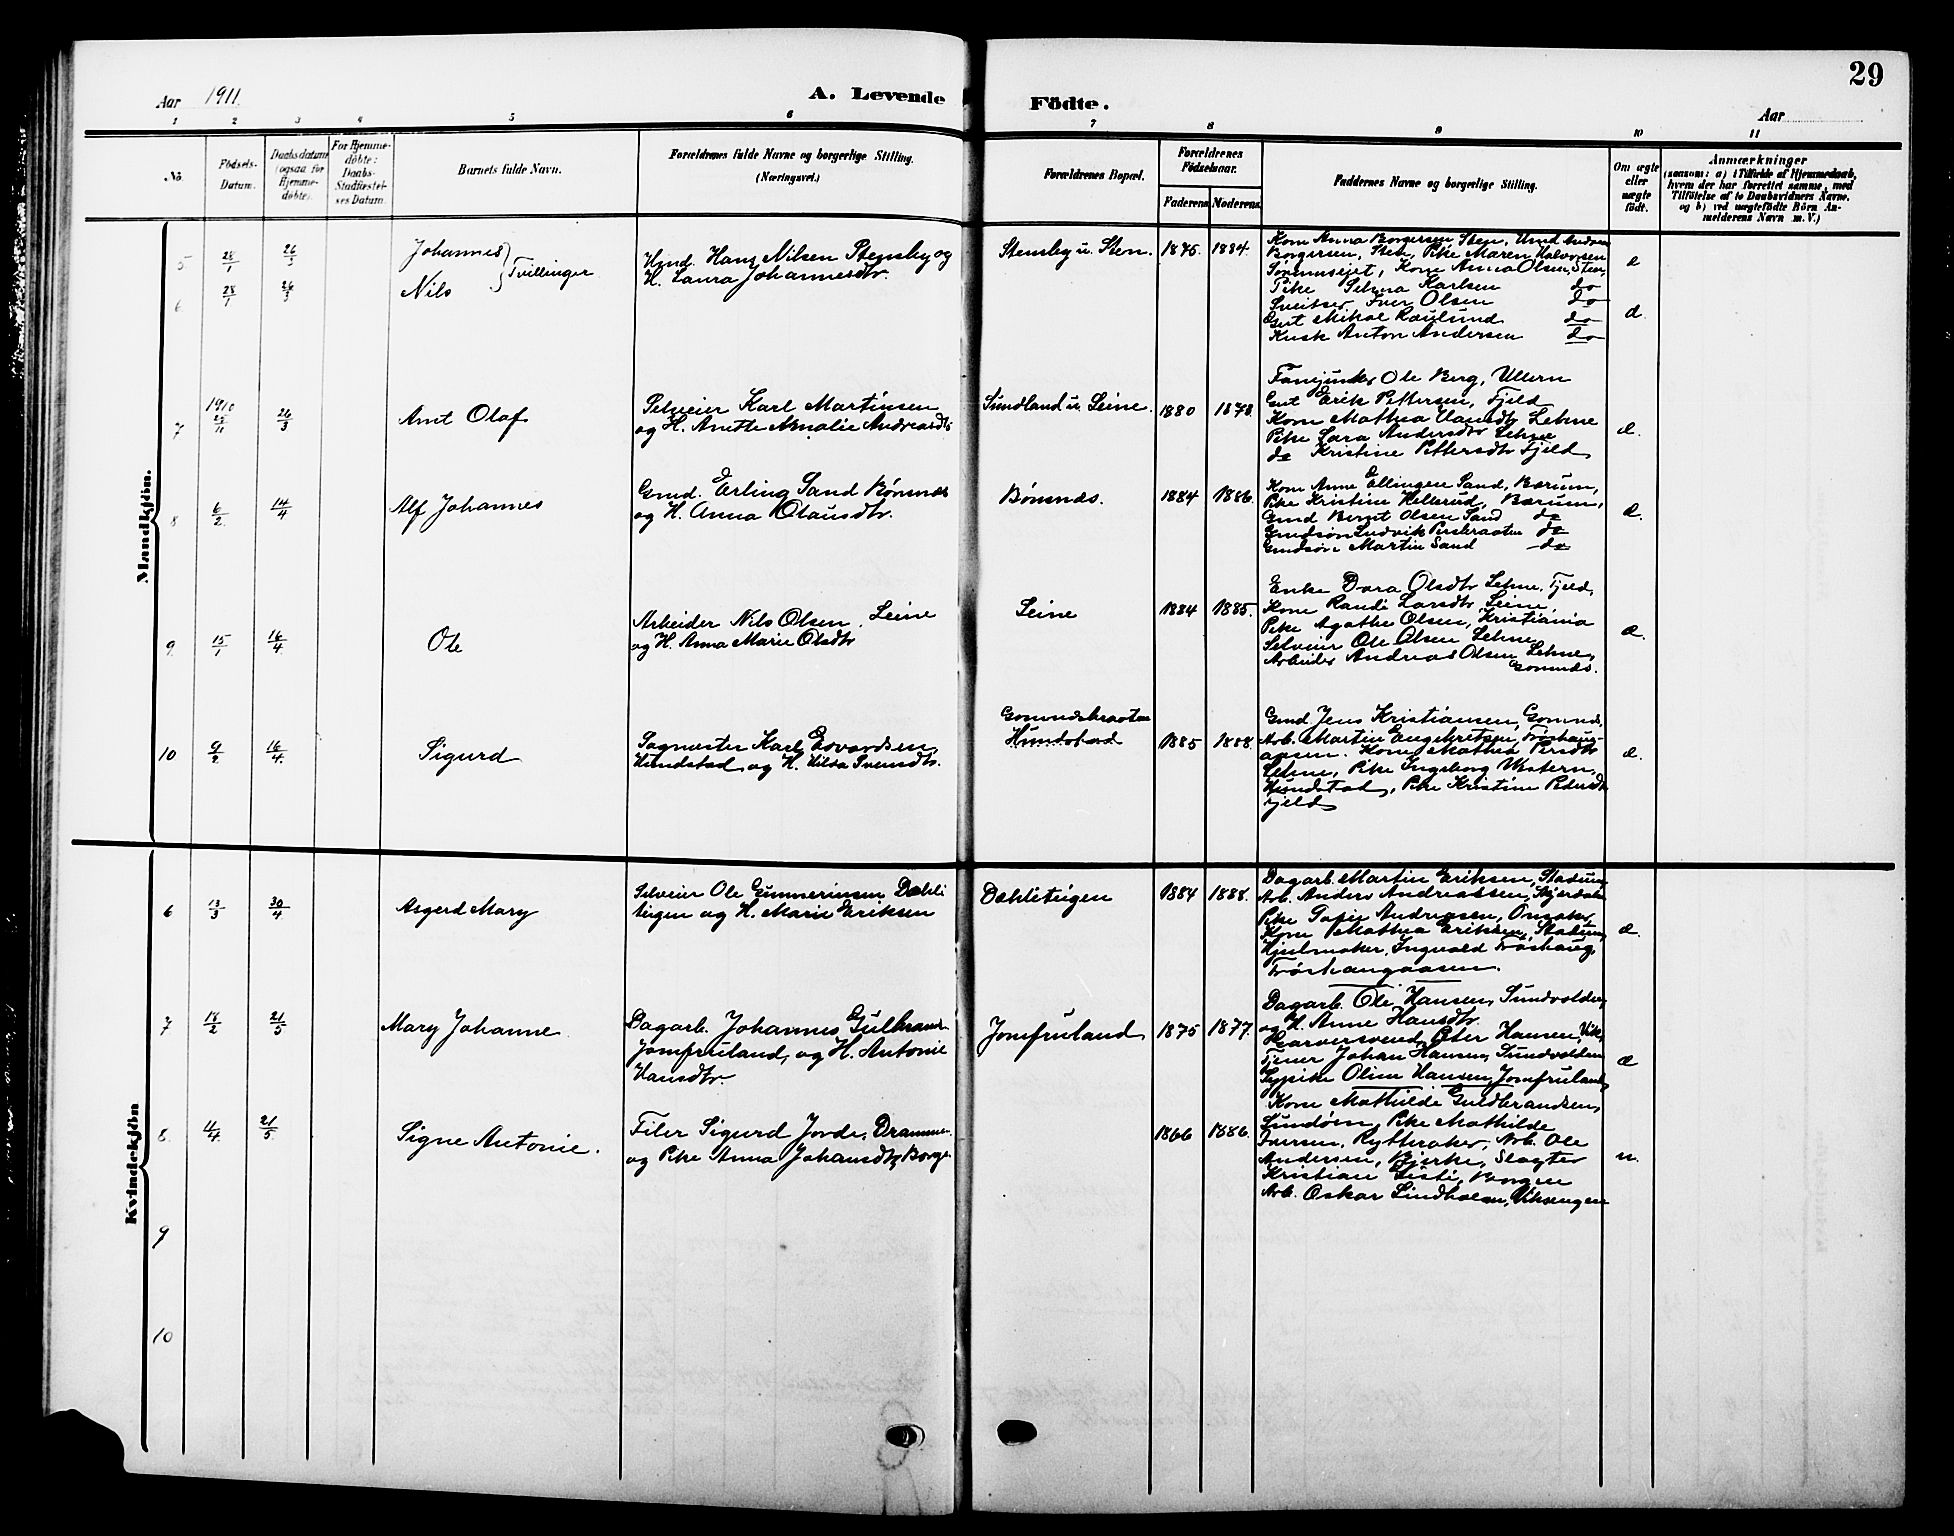 29
Aar 1911.
A. Levende
Födte.
Aar
1 2 3 4 5 6 7 8 9 10 11
No.
Födsels-
Datum.
Daabsdatum
(ogsaa for
Hjemme-
döbte).
For Hjemme-
döbte:
Daabs-
Stadfæstel-
ses Datum.
Barnets fulde Navn.
Forældrenes fulde Navne og borgerlige Stilling.
(Næringsvei.)
Forældrenes Bopæl.
Forældrenes
Födselsaar.
Faderens Moderens.
Faddernes Navne og borgerlige Stilling.
Om ægte
eller
uægte
födt.
Anmærkninger
(saasom: a) i Tilfælde af Hjemmedaab,
hvem der har forrettet samme, med
Tilföielse af to Daabsvidners Navne.
og b) ved uægtefödte Börn An-
melderens Navn m. V.)
Mandkjön.
5 28/1 26/3 Johannes
6 28/1 26/3 Nils
Tvillinger
Hans Nilsen Stensby og
H. Laura Johannesdtr.
Stensby u. Sten. 1875. 1884.
Kone Anna Borgersen, Sten,
Borgersen, Sten, Pike Maren Halvorsen
Kone Anna Olsen, Sten,
Pike Selma Karlsen do
Sveitser Iver Olsen do
Gut Mikal Raulund do
Kusk Anton Andersen do
d.
7 1910 25/11 26/3 Arnt Olaf
Selveier Karl Martinsen
og H. Anette Amalie Andreasdtr
Sundland u. Leine. 1880 1878.
Fanejunker Ole Berg, Ullern
Gut Erik Pettersen, Fjeld
Kone Mathea Lehne
Pike Lara Andersdtr Lehne
do Kristine Pettersdtr Fjeld
æ.
8 6/2. 14/4 Alf Johannes
Gmd. Erling Sand Bönsnes
og H. Anna Olausdtr.
Bönsnes. 1884 1886.
Kone Anne Ellingsen Sand, Bærum,
Pike Kristine Hellerud, Bærum,
Gmd Bernt Olsen Sand do
Gmdsön Ludvik Persbraaten do
Gmdsön Martin Sand do
æ.
9. 15/1 16/4 Ole
Arbeider Nils Olsen, Leine
og H. Anna Marie Olsdtr
Leine 1884 1885.
Enke Dora Olsdtr Lehne, Fjeld,
Kone Randi Larsdtr Leine
Pike Agathe Olsen, Kristiania
Selveier Ole Olsen Lehne
Arbeider Andreas Olsen Lehne,
Gomnes.
æ.
10 9/2. 16/4. Sigurd
Sagmester Karl Edvardsen
Hundstad og H. Hilda Svensdtr.
Gomnesbraaten
Hundstad
1885 1888.
Gmd Jens Kristiansen, Gomnes,
Arb. Martin Engebretsen, Fröshaug-
aasen. Kone Mathea Persdtr
Lehne, Pike Ingeborg Western,
Hundstad, Pike Kristine Pedersdtr
Fjeld
æ.
Kvindekjön
6 13/3 30/4 Asgerd Mary
Selveier Ole Gunneriusen Dæhli
teigen og H. Marie Eriksen
Dæhliteigen 1884 1888.
Dagarb. Martin Eriksen, Stadum,
Arb. Anders Andreassen,
Pike Sofie Andreasen, Onsaker,
Kone Mathea Eriksen, Stadum,
Hjulmaker Ingvald Fröshaug,
Fröshaugaasen.
æ.
7 18/2 21/5 Mary Johanne
Dagarb. Johannes Gulbrands.
Jomfruland, og H. Antonie
Hansdtr.
Jomfruland 1875 1877.
Dagarb. Ole Hansen, Sundvolden,
og H. Anne Hansdtr.
Garversvend Peter Hansen, Vik,
Tjener Johan Hansen, Sundvolden
Sypike Oline Hansen, Jomfruland,
æ
8. 11/4. 21/5. Signe Antonie.
Filer Sigurd Jorde, Drammen.
og Pike Anna Johansdtr, Borge
1866 1886.
Kone Mathilde Guldbrandsen,
Sundöen, Pike Mathilde
Iversen, Rytteraker, Arb. Ole
Andersen, Bjerke, Slagter
Kristian Borgen
Arb. Oskar Lindholm, Viksengen
u.
9
10